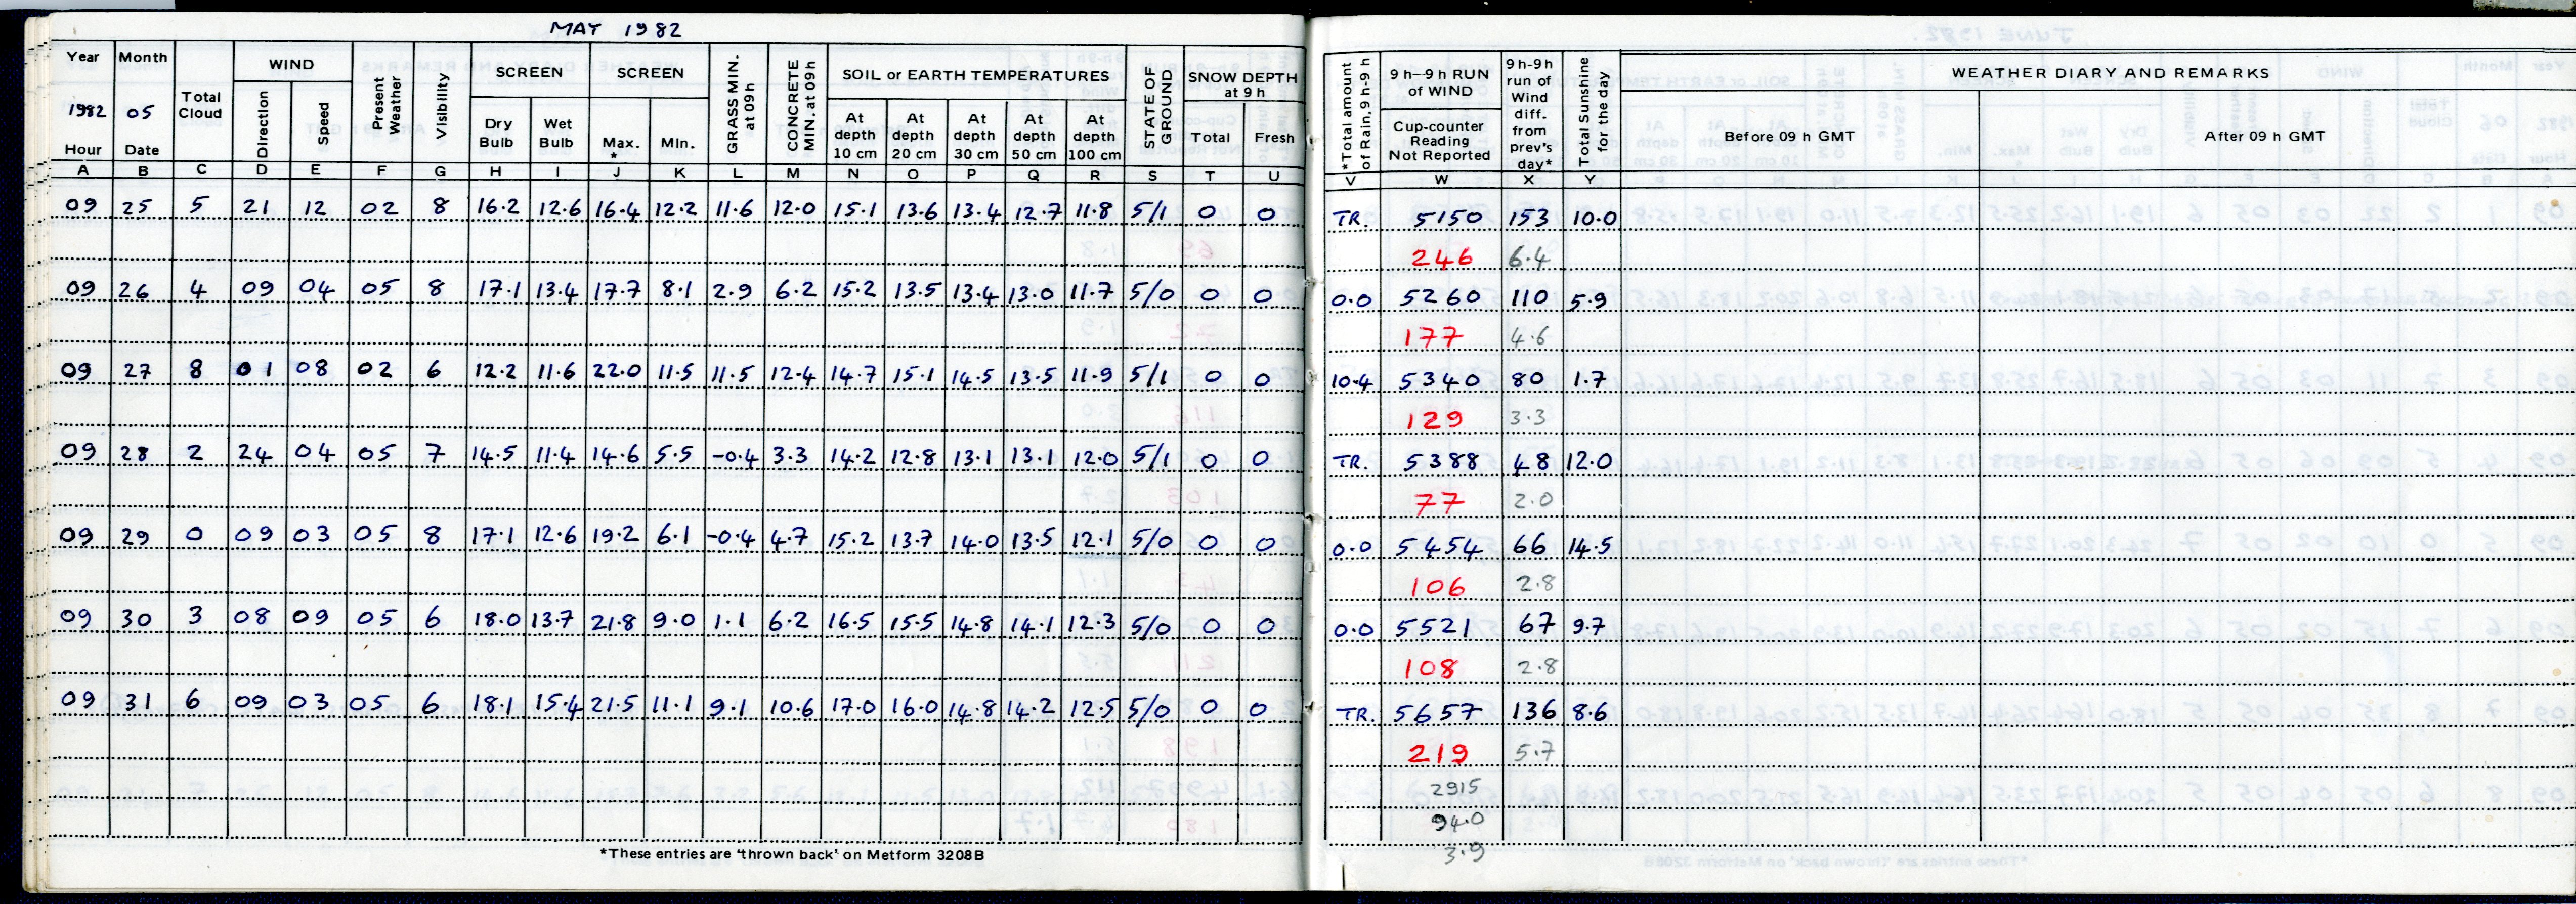 MAY 1982
Year Month Total Cloud WIND Present Weather Visibility SCREEN SCREEN GRASS MIN. at 09h CONCRETE MIN. at 09h SOIL or EARTH TEMPERATURES STATE OF GROUND SNOW DEPTH at 9 h *Total amount of Rain, 9h-9 h 9 h–9 h RUN of WIND 9 h-9h run of Wind diff. from prev's day* Total Sunshine for the day WEATHER DIARY AND REMARKS
1982 05 Direction Speed Dry Bulb Wet Bulb Max. * Min. At depth 10 cm At depth 20 cm At depth 30 cm At depth 50 cm At depth 100 cm Total Fresh Cup-counter Reading Not Reported Before 09 h GMT After 09 h GMT
Hour Date
A B C D E F G H I J K L M N O P Q R S T U V W X Y
09 25 5 21 12 02 8 16.2 12.6 16.4 12.2 11.6 12.0 15.1 13.6 13.4 12.7 11.8 5/1 0 0 TR. 5150 153 10.0
246 6.4
09 26 4 09 04 05 8 17.1 13.4 17.7 8.1 2.9 6.2 15.2 13.5 13.4 13.0 11.7 5/0 0 0 0.0 5260 110 5.9
177 4.6
09 27 8 01 08 02 6 12.2 11.6 22.0 11.5 11.5 12.4 14.7 15.1 14.5 13.5 11.9 5/1 0 0 10.4 5340 80 1.7
129 3.3
09 28 2 24 04 05 7 14.5 11.4 14.6 5.5 -0.4 3.3 14.2 12.8 13.1 13.1 12.0 5/1 0 0 TR. 5388 48 12.0
77 2.0
09 29 0 09 03 05 8 17.1 12.6 19.2 6.1 -0.4 4.7 15.2 13.7 14.0 13.5 12.1 5/0 0 0 0.0 5454 66 14.5
106 2.8
09 30 3 08 09 05 6 18.0 13.7 21.8 9.0 1.1 6.2 16.5 15.5 14.8 14.1 12.3 5/0 0 0 0.0 5521 67 9.7
108 2.8
09 31 6 09 03 05 6 18.1 15.4 21.5 11.1 9.1 10.6 17.0 16.0 14.8 14.2 12.5 5/0 0 0 TR. 5657 136 8.6
219 5.7
2915
94.0
3.9
*These entries are 'thrown back' on Metform 3208B